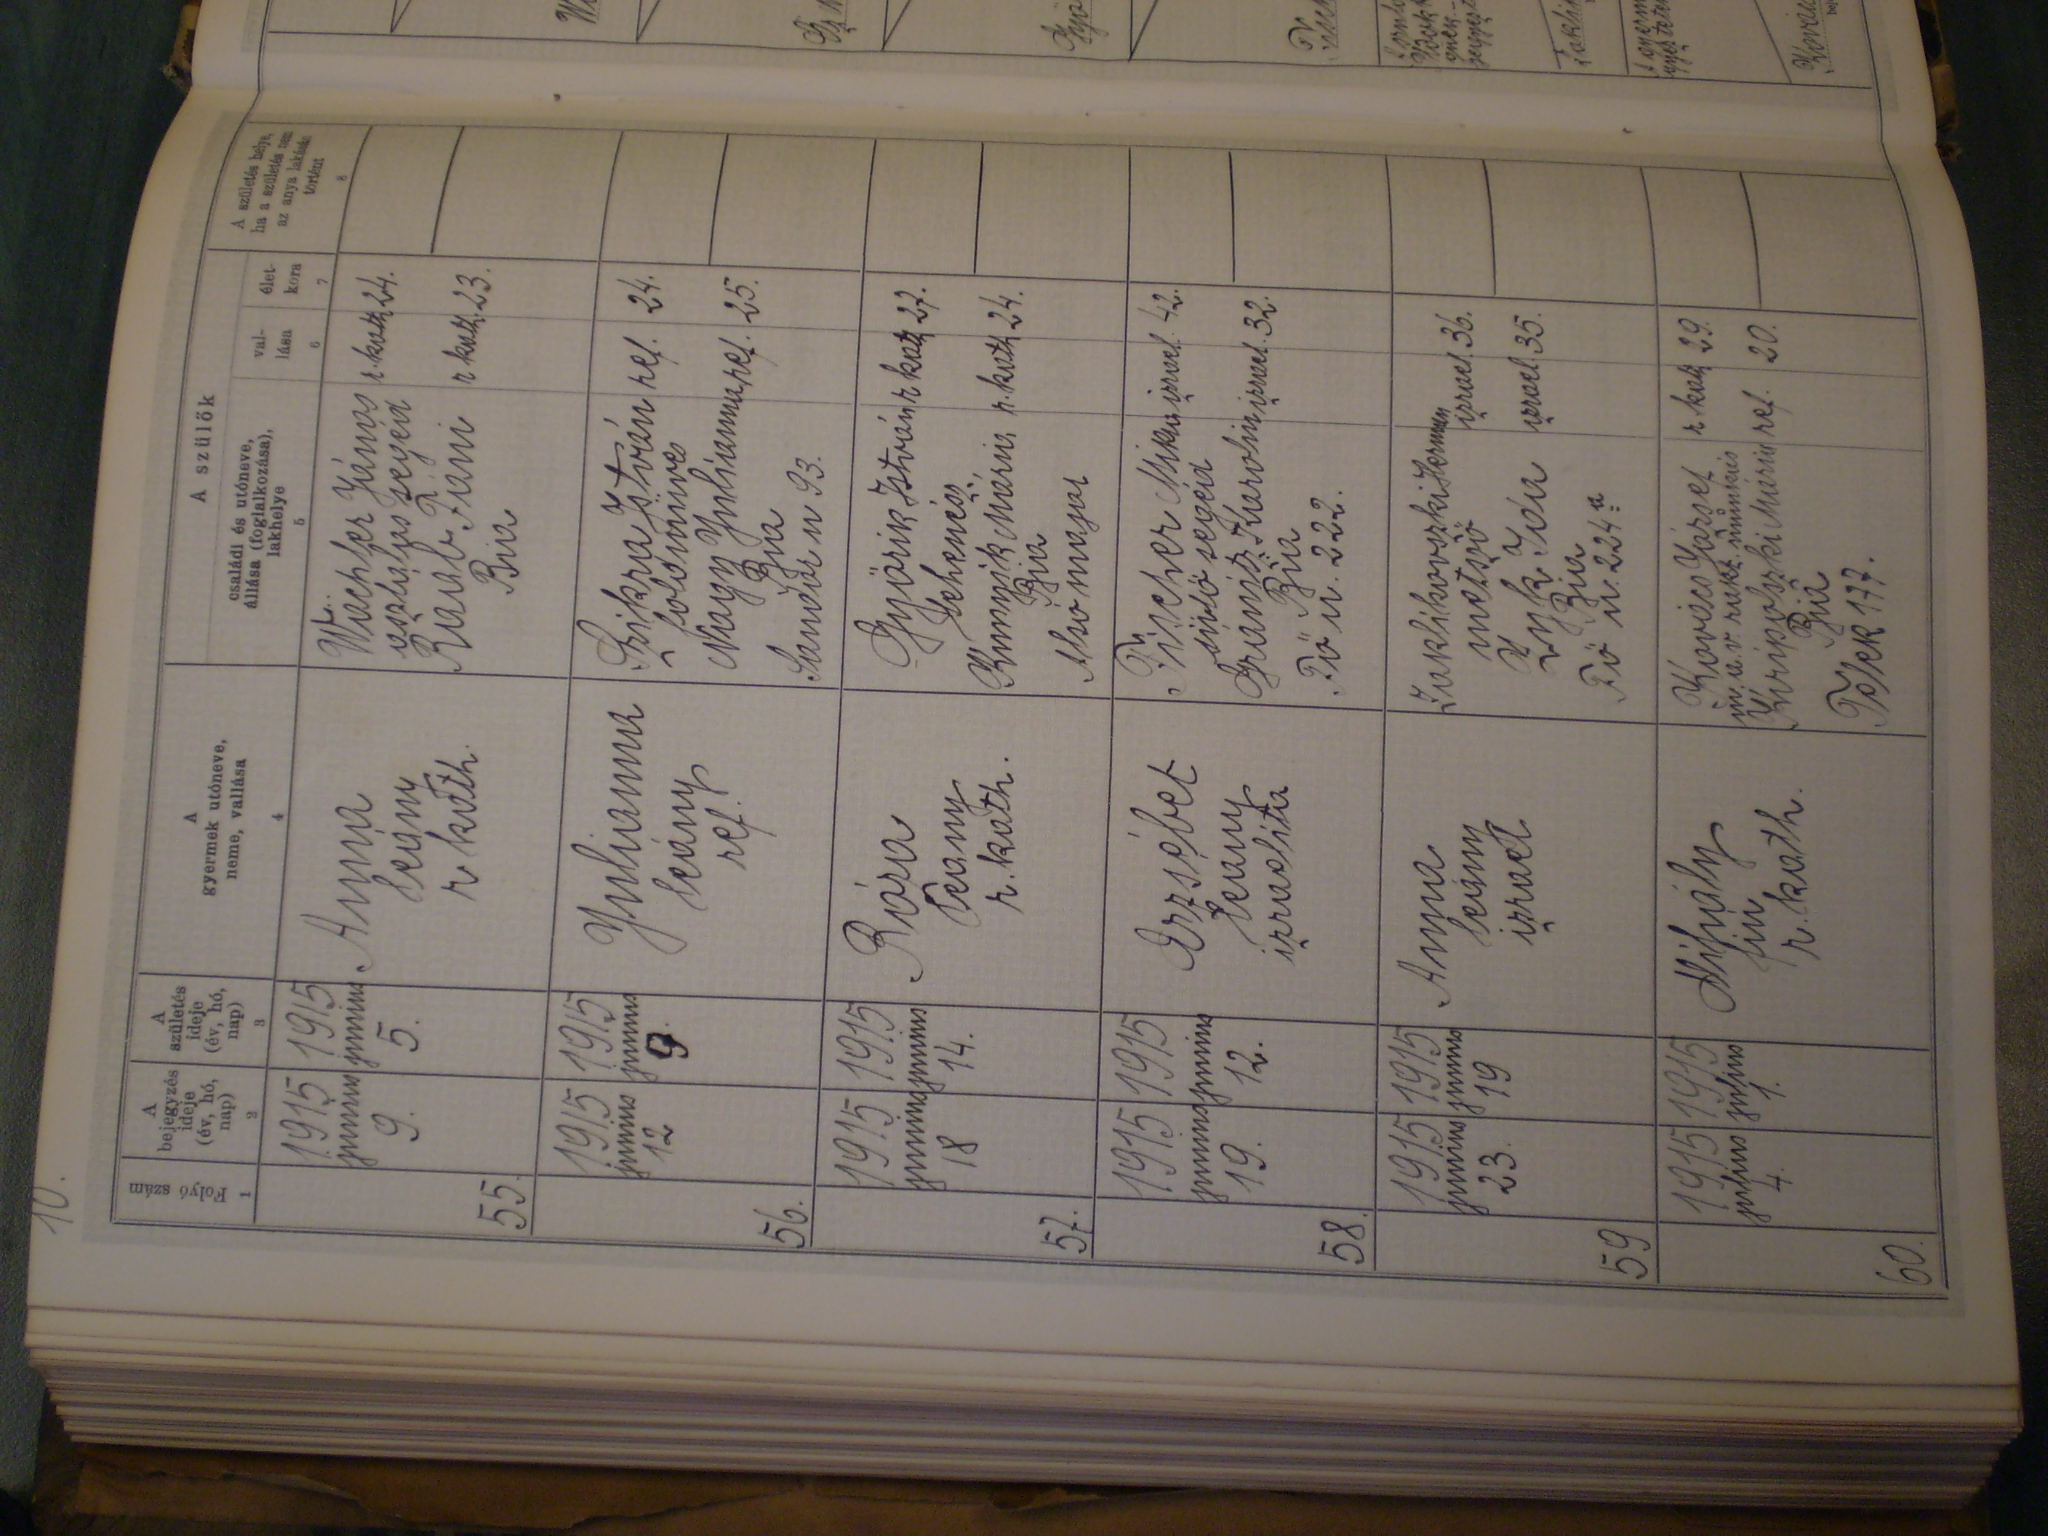 10.
Folyó
szám
1
A
bejegyzés
ideje
(év, hó,
nap)
2
A
születés
ideje
(év, hó,
nap)
3
A
gyermek utóneve,
neme, vallása
4
A szülők
családi és utóneve,
állása (foglalkozása),
lakhelye
5
val-
lása
6
élet-
kora
7
A születés helye,
ha a születés nem
az anya lakásán
történt
8
55.
1915
junius
9.
1915
junius
5.
Anna
leány
r kath.
Wachsler János r. kath 24.
segéd
Raab Fáni r kath. 23.
Bia
56.
1915
junius
12
1915
junius
9.
Julianna
leány
ref.
Szikra István ref. 24.
földmives
Nagy Julianna ref. 25.
Bia
Sándor u 93.
57.
1915
junius
18
1915
junius
14.
Róza
leány
r. kath.
Győrik István r kath 27.
Mária r. kath 24.
Bia
Alsó major
58.
1915
junius
19.
1915
junius
12.
Erzsébet
leány
izraelita
Fischer Miksa izrael. 42.
segéd
Karolin izrael. 32.
Bia
Fő u. 222.
59
1915
junius
23.
1915
junius
19
Anna
leány
izrael
Zaklikovszki Herman izrael. 36.
metsző
Ida izrael. 35.
Bia
Fő u. 224a
60.
1915
julius
4.
1915
julius
1.
Mihály
fiu
r. kath.
Kovács József r. kath 29.
m. á. v. rakt. munkás
Mária ref. 20.
Bia
177.